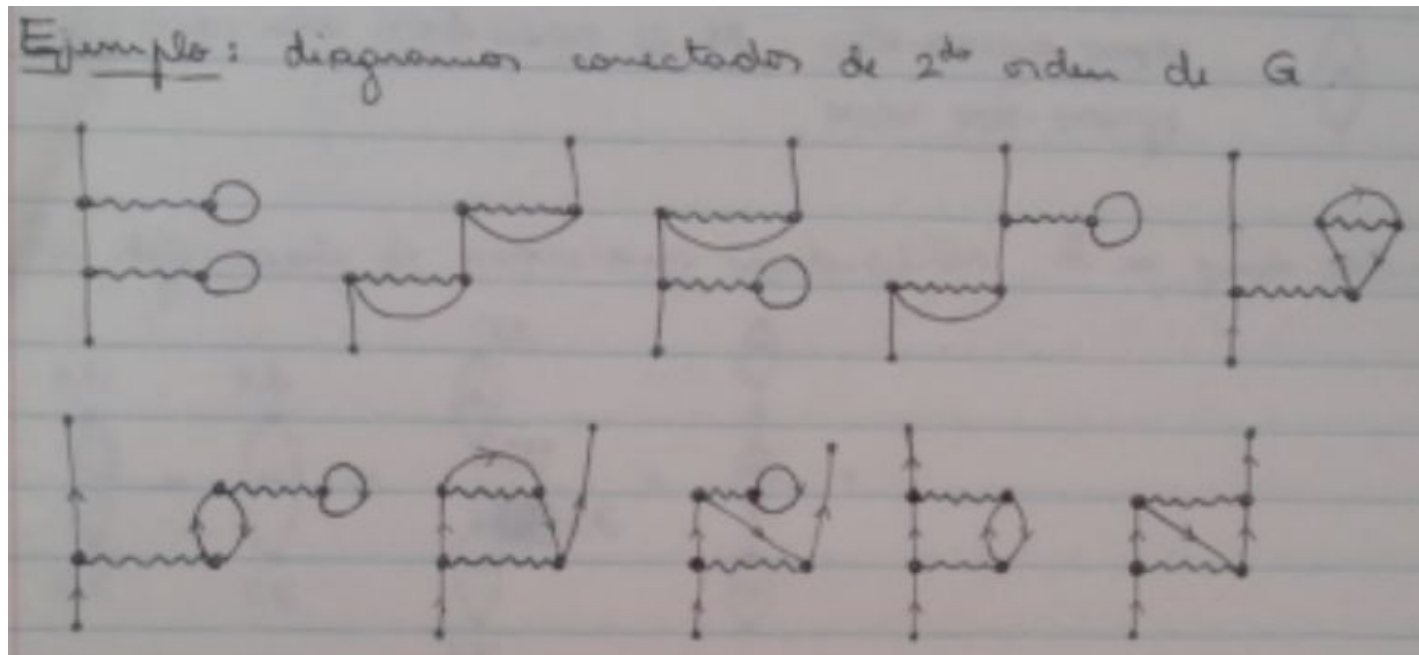 Ejemplo: diagramas conectados de 2do orden de G.